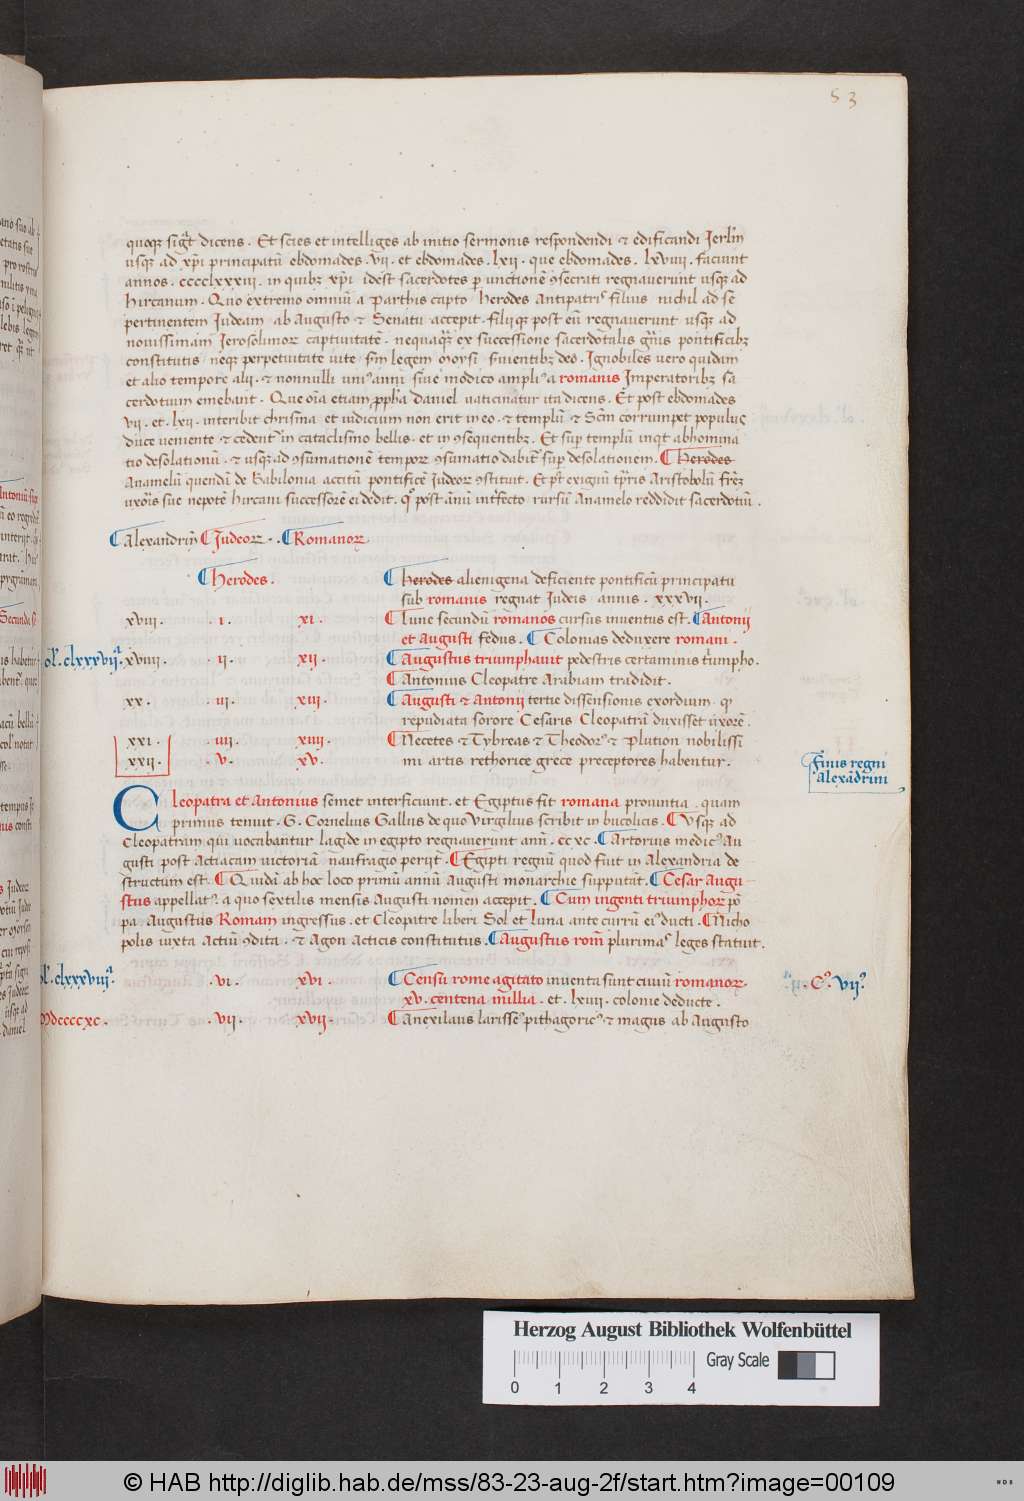 53
quoqꝫ sigͭ dicens . Et scies et intelliges ab initio sermonis respondendi ⁊ edificandi Jerlm̄
usqꝫ ad xp̄i principatū ebdomades . vii . et ebdomades . lxii . que ebdomades . lxviiii . faciunt
annos . cccclxxxiii . in quibꝫ xp̄i idest sacerdotes ꝑ unctionē ꝯsecrati regnauerunt usqꝫ ad
hircanum . Quo extremo omniū a Parthis capto herodes Antipatriꝰ filius nichil ad se
pertinentem Iudeam ab Augusto ⁊ Senatu accepit . filiiqꝫ post eū regnauerunt usqꝫ ad
nouissimam Jerosolimoꝝ captiuitatē . nequaqꝫ ex successione sacerdotalis gn̄is pontificibꝫ
constitutis neqꝫ perpetuitate uite scm̄ legem moysi seruientibꝫ deo . Ignobiles uero quidam
et alio tempore alij . ⁊ nonnulli uniꝰ anni siue modico ampliꝰ a romanis Imperatoribꝫ sa
cerdotium emebant . Que oīa etiam ꝓpha Daniel uaticinatur ita dicens . Et post ebdomades
vii . et . lxii . interibit chrisma et iudicium non erit in eo . ⁊ templū ⁊ Scm̄ corrumpet populus
duce ueniente ⁊ cedent in cataclismo bellis . et in ꝯsequentibꝫ . Et suꝑ templū inqt abhomina
tio desolationū . ⁊ usqꝫ ad ꝯsumationē tempoꝝ ꝯsumatio dabit suꝑ desolationem . Herodes
Anamelū quendā de babilonia accitū pontificē Iudeoꝝ ꝯstituit . Et pꝰ exiguū tp̄ris Aristobolū frēm
uxoris sue nepotē hircani successorē ei dedit . qꝰ post ānū interfecto rursū Anamelo reddidit sacerdotiū .
Alexandrinj Judeoꝝ . . Romanoꝝ
herodes .
herodes alienigena deficiente pontificū principatu
sub romanis regnat Iudeis annis . xxxvii .
xviii . i . xi . lune secundū romanos cursus inuentus est . Antonij
et Augusti fedus . Colonias deduxere romani .
ol. clxxxvii xviiii . ii . xii . Augustus triumphauit pedestris certaminis triumpho .
Antonius Cleopatre Arabiam tradidit .
xx . iii . xiii . Augusti ⁊ Antonij tertie dissensionis exordium . qͥ
repudiata sorore Cesaris Cleopatrā duxisset uxorē .
xxi . iiii . xiiii . Necetes ⁊ Tybreas ⁊ Theodorꝰ ⁊ Plution nobilissi
xxii . v . xv . mi artis rethorice grece preceptores habentur .
Finis regni
Alexādrini
Cleopatra et Antonius semet interficiunt . et Egiptus fit romana prouintia . quam
primus tenuit . G . Cornelius Gallus de quo Virgilius scribit in bucolicis . Vsqꝫ ad
Cleopatram qui uocabantur lagide in egipto regnauerunt anni . ccxc . Artorius medicꝰ Au
gusti post Actiacam uictoriā naufragio perijt . Egipti regnū quod fuit in Alexandria de
structum est . Quidā ab hoc loco primū annū Augusti monarchie supputāt . Cesar Augu
stus appellatꝰ . a quo sextilis mensis Augusti nomen accepit . Cum ingenti triumphoꝝ pō
pa . Augustus Romam ingressus . et Cleopatre liberi Sol et luna ante currū eiꝰ ducti . Nicho
polis iuxta Actiū ꝯdita . ⁊ Agon Acticis constitutus . Augustus rom̄ plurimas leges statuit .
ol. clxxxviii . vi . xvi . Censu rome agitato inuenta sunt ciuiū romanoꝝ
xv . centena millia . et . lxiiii . colonie deducte .
Cꝰ vii
Mdccccxc . vii . xvii . Anexilaus larisseꝰ pithagoricꝰ ⁊ magus ab Augusto
Herzog August Bibliothek Wolfenbüttel
Gray Scale
0 1 2 3 4
© HAB http://diglib.hab.de/mss/83-23-aug-2f/start.htm?image=00109